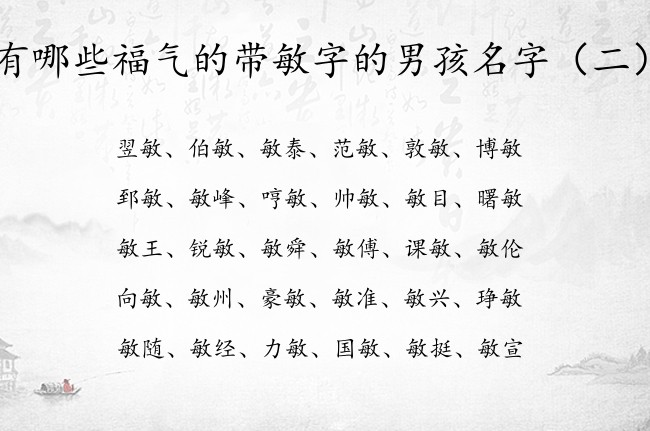 有哪些福气的带敏字的男孩名字（二）
翌敏、伯敏、敏泰、范敏、敦敏、博敏
郅敏、敏峰、哼敏、帅敏、敏目、曙敏
敏王、锐敏、敏舜、敏傅、课敏、敏伦
向敏、敏州、豪敏、敏准、敏兴、琤敏
敏随、敏经、力敏、国敏、敏挺、敏宣